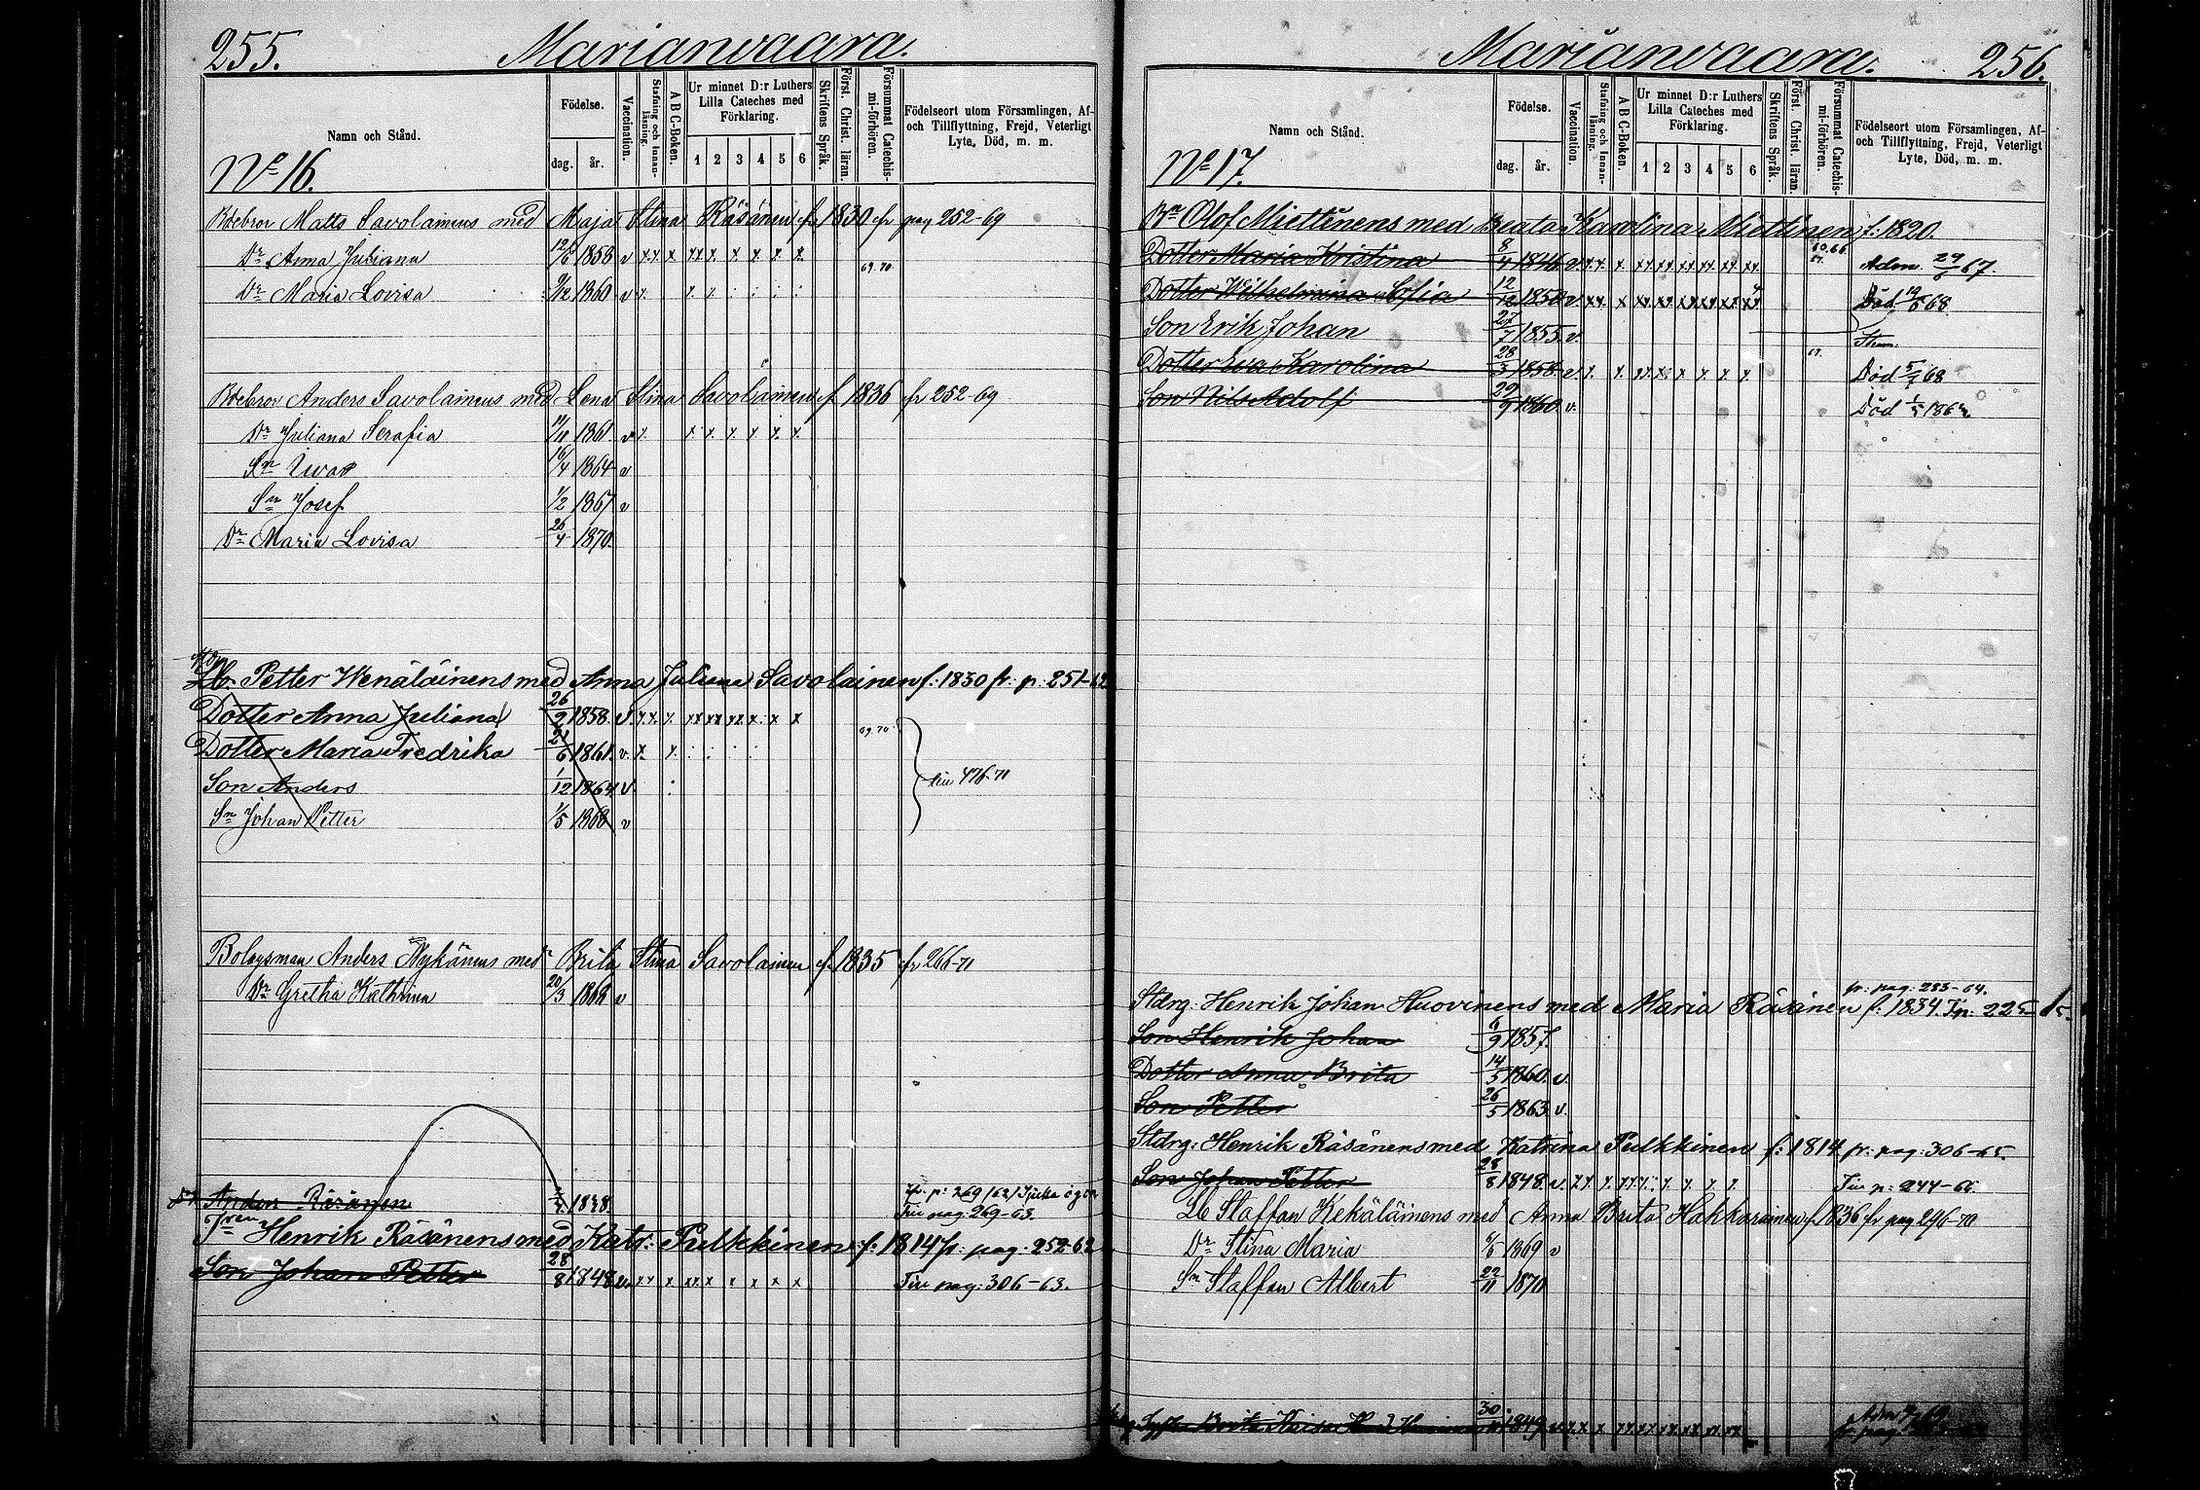 255. Marianvaara.
Namn och Stånd.
Födelse.
dag. år.
Vaccination.
Stafning och Innan-läsning.
A B C-Boken.
Ur minnet D:r Luthers Lilla Cateches med Förklaring.
1 2 3 4 5 6
Skriftens Språk.
Först. Christ. läran.
Försummat Catechis-mi-förhören.
Födelseort utom Församlingen, Af- och Tillflyttning, Frejd, Veterligt Lyte, Död, m. m.
No 16.
Matts Savolainens med Maja Stina Räsänen f. 1830 fr pag 252-69
Dr Anna Juliana 1858 v xx x xx x x x x x
69.70
Dr Maria Lovisa 1860 v x.
Anders Savolainens med Lena Stina Savolainen f. 1836 fr 252-69
Dr Juliana Serafia 1861 v x. x x x x x x
Sn Iivar 16/4 1864 v
Sn Josef 1/2 1867 v
Dr Maria Lovisa 26/4 1870.
Petter Wenäläinens med Anna Juliana Savolainen f: 1830 fr: p: 251-62
Dotter Anna Juliana 26/2 1858. v. x x. x. xx xx xx x. x x
69.70
Dotter Maria Fredrika 21/6 1861. v. x. x.
Son Anders 1/12 1864 v.
476-71
Sn Johan Petter 1/5 1868 v
Bolagsman Anders Nykänens med Brita Stina Savolainen f. 1835 fr 266-71
Dr Gretha Kathrina 20/3 1868 v
fr. p: 269/62
Räsänen 1838.
pag. 269-63.
Henrik Räsänens med Katr: Pulkkinen f: 1814 fr: pag: 252-62
Son Johan Petter 28/8 1848 v. xx x xx x x x x x pag: 306-63.
Marianvaara. 256.
Namn och Stånd.
Födelse.
dag. år.
Vaccination.
Stafning och Innan-läsning.
A B C-Boken.
Ur minnet D:r Luthers Lilla Cateches med Förklaring.
1 2 3 4 5 6
Skriftens Språk.
Först. Christ. läran.
Försummat Catechis-mi-förhören.
Födelseort utom Församlingen, Af- och Tillflyttning, Frejd, Veterligt Lyte, Död, m. m.
No 17.
Olof Miettinens med Beata Karolina Miettinen f: 1820.
Dotter Maria Kristina 8/4 1846. v. x x. x. xx xx xx xx xx xx Adm. 29/6 67.
Dotter Wilhelmina Sofia 12/12 1850. v. xx x xx xx xx xx xx xx Död 68.
Son Erik Johan 27/7 1855. v.
Dotter Eva Karolina 28/3 1858. v. x. x. xx xx x x x x. Död 68
Son Nils Adolf 29/9 1860. v. Död
fr. pag: 283-64.
Stdrg: Henrik Johan Huovinens med Maria Räsänen f: 1834.
Son Henrik Johan 6/9 1857.
Dotter Anna Brita 14/5 1860. v.
Son Petter 26/5 1863 v.
Stdrg: Henrik Räsänens med Katrina Pulkkinen f: 1814 fr: pag: 306-65
Son Johan Petter 28/8 1848. v. x x x x x. x x x x. p: 244-66.
Lb Staffan Kekäläinens med Anna Brita Hakkarainen f. 1836 fr pag 246-70
Dr Stina Maria 1869 v
Sn Staffan Albert 22/11 1870
Brita Kaisa 30 1849. v. x. x x xx xx xx xx xx xx